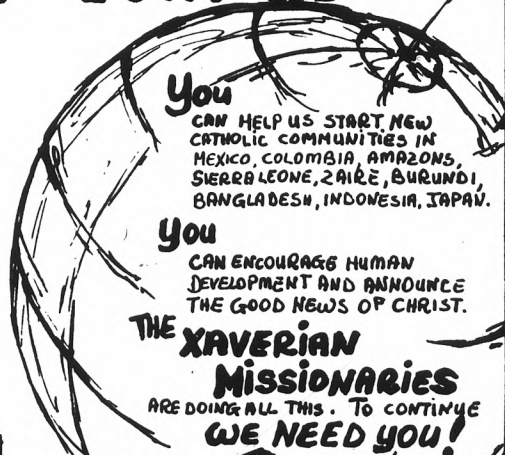 You
CAN HELP US START NEW
CATHOLIC COMMUNITIES IN
MEXICO, COLOMBIA, AMAZONS,
SIERRA LEONE, ZAIRE, BURUNDI,
BANGLADESH, INDONESIA, JAPAN.
You
CAN ENCOURAGE HUMAN
DEVELOPMENT AND ANNOUNCE
THE GOOD NEWS OF CHRIST.
THE XAVERIAN
MISSIONARIES
ARE DOING ALL THIS. TO CONTINUE
WE NEED YOU!